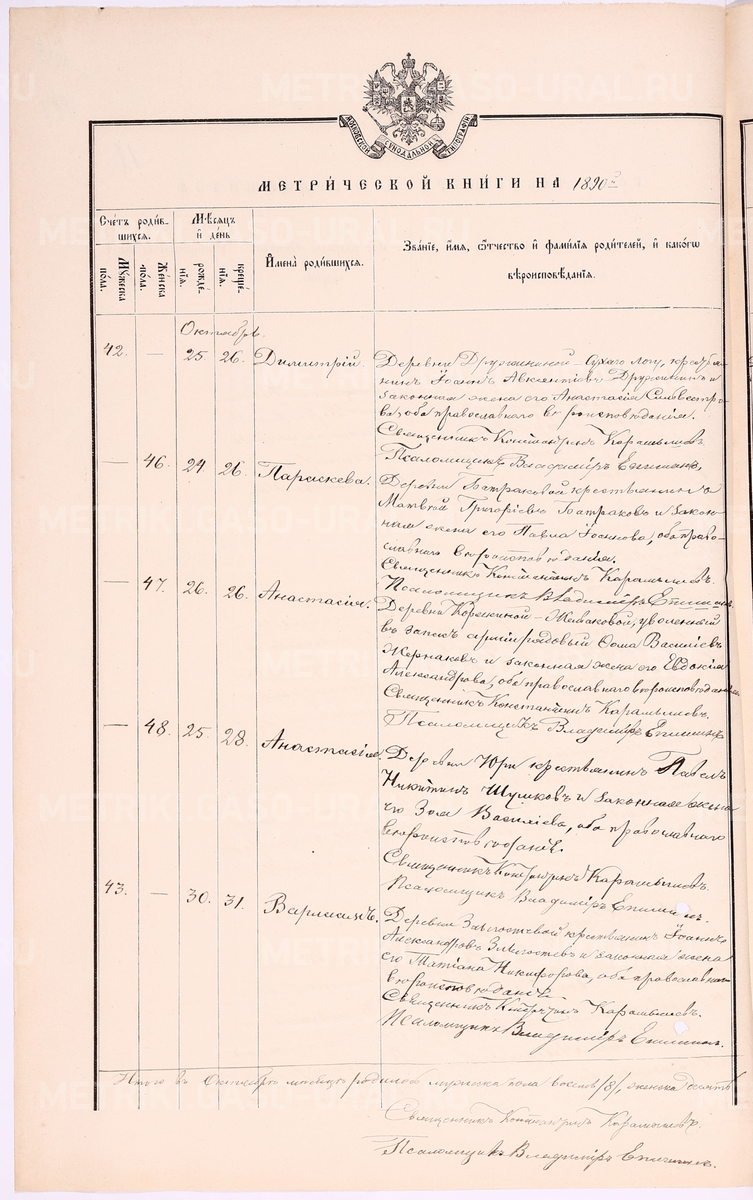 МОСКОВСКОЙ СѴНОДАЛЬНОЙ ТИПОГРАФІИ
МЕТРИ́ЧЕСКОЙ КНИ́ГИ НА 1890 г.
Сче́тъ роди́вшихся.
Мꙋ́жеска по́ла.
Же́нска по́ла.
Мѣ́сяцъ и҆ де́нь
рожде́нїѧ.
креще́нїѧ.
И҆мена̀ роди́вшихсѧ.
Зва́нїе, и҆́мѧ, ѻ҆́тчество и҆ фами́лїѧ роди́телей, и҆ како́гѡ
вѣроисповѣ́данїѧ.
Октябрь.
42. — 25 26. Димитрій.
Деревни Дружининой - Сухаго логу, крестья-
нинъ Іоаннъ Авксентіевъ Дружининъ и
законная жена его Анастасія Сильвестро-
ва, оба православнаго вѣроисповѣданія.
Священникъ Константинъ Карамышевъ
Псаломщикъ Владиміръ Епишинъ
— 46. 24 26. Параскева.
Деревни Батраковой крестьянинъ
Матвѣй Григоріевъ Батраковъ и закон-
ная жена его Павла Іосифова, оба право-
славнаго вѣроисповѣданія.
Священникъ Константинъ Карамышевъ.
Псаломщикъ Владиміръ Епишинъ.
— 47. 26. 26. Анастасія.
Деревни уволенный
въ запасъ арміи рядовый Ѳома Василіевъ
Жернаковъ и законная жена его Евдокія
Александрова, оба православнаго вѣроисповѣданія
Священникъ Константинъ Карамышевъ.
Псаломщикъ Владиміръ Епишинъ
— 48. 25. 28. Анастасія.
Деревни Юри крестьянинъ Павелъ
Никитинъ Шумковъ и законная жена
его Зоя Василіева, оба православнаго
вѣроисповѣданія.
Священникъ Константинъ Карамышевъ.
Псаломщикъ Владиміръ Епишинъ.
43. — 30. 31. Варлаамъ.
Деревни крестьянинъ Іоаннъ
Александровъ и законная жена
его Татіана Никифорова, оба православнаго
вѣроисповѣданія
Священникъ Константинъ Карамышевъ.
Псаломщикъ Владиміръ Епишинъ.
Итого въ Октябрѣ мѣсяцѣ родилось мужеска пола восемь /8/, женска десять
Священникъ Константинъ Карамышевъ.
Псаломщикъ Владиміръ Епишинъ.
METRIKI.GASO-URAL.RU